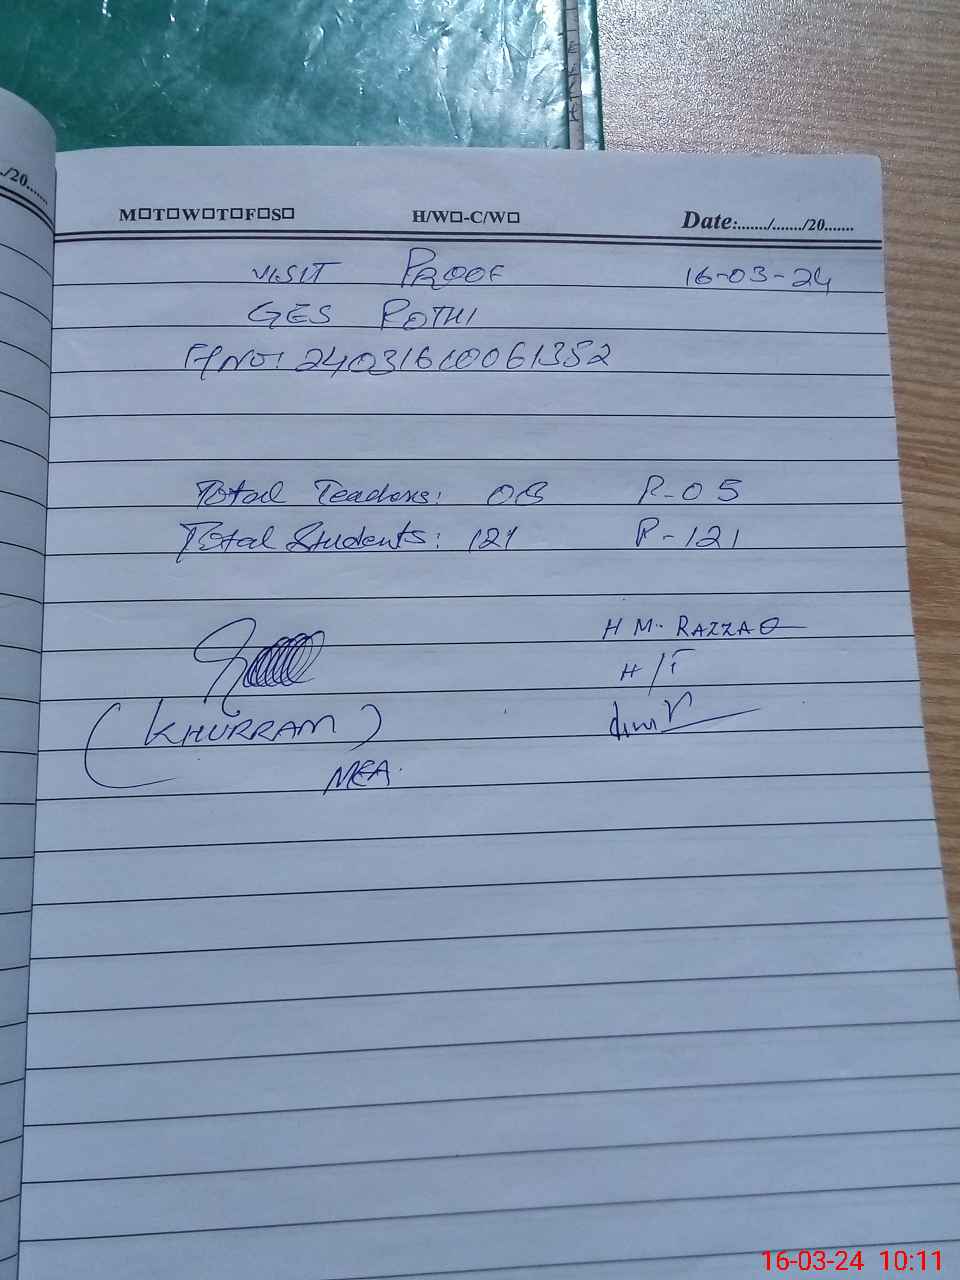 ./20......
M□T□W□T□F□S□ H/W□-C/W□ Date:......./......./20.......
VISIT PROOF 16-03-24
GES POTHI
F/NO: 24031610061352
Total Teachers: 08 P-05
Total Students: 121 P-121
H M. RAZZAQ
H/T
(KHURRAM)
MEA.
16-03-24 10:11